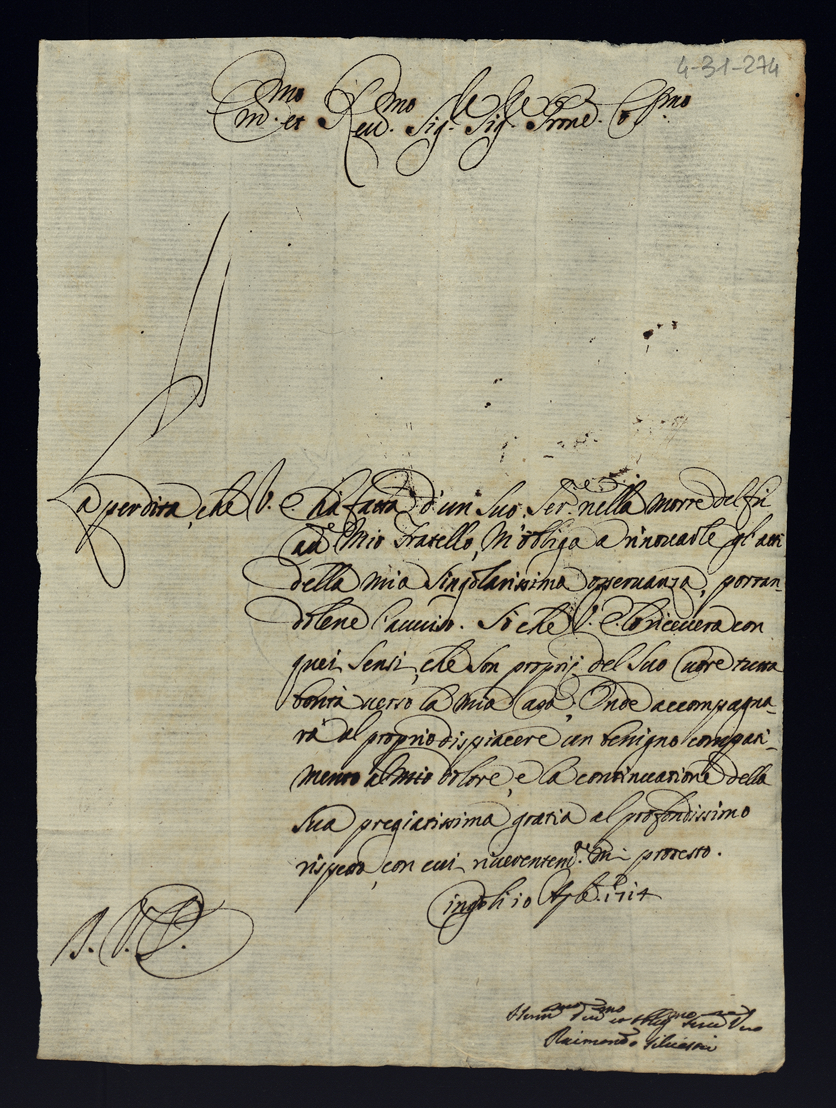 4-31-274
Em.mo et Reu.mo Sig.re Sig.re Prone. Co.mo
La perdita, che V. E. hà fatta d'un Suo Ser.re nella morte del fù
Mio Fratello, M'obliga à rinouarle gl'atti
della mia Singolarissima osseruanza, portan-
dolene l'auuiso. Si che V. E. lo riceuerà con
quei Sensi, che Son proprij del Suo Cuore tutta
bontà uerso la mia Casa, Onde accompagna-
rà al proprio dispiacere un benigno compati-
mento al Mio dolore, e la continuatione della
Sua pregiatissima gratia al profondissimo
rispetto, con cui riuerentem.te Mi protesto.
Cingoli 10 1714
Raimondo Siluestri